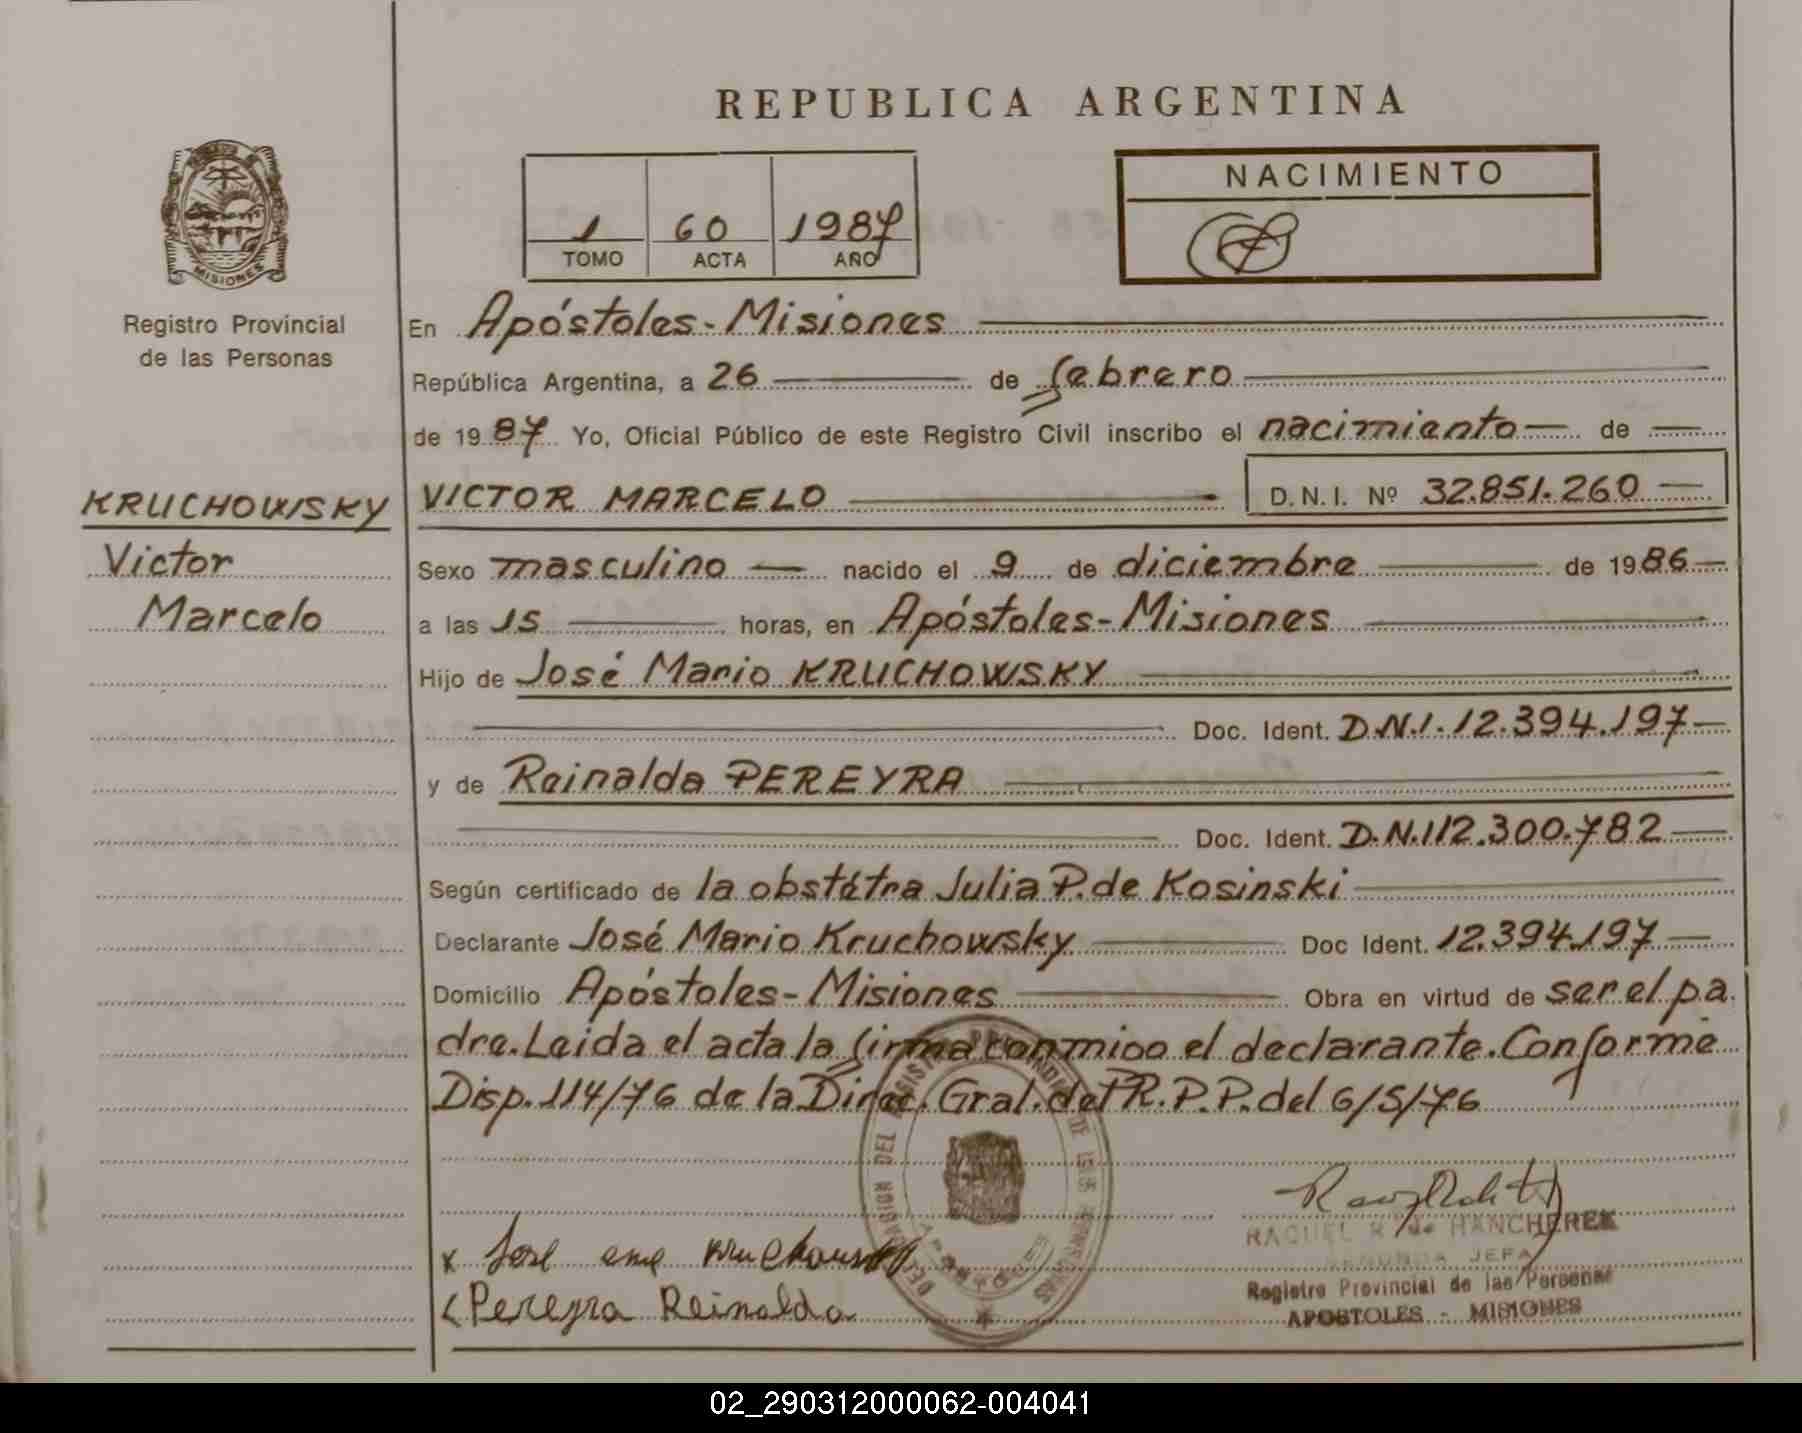 REPUBLICA ARGENTINA
NACIMIENTO
1 60 1987
TOMO ACTA AÑO
MISIONES
Registro Provincial
de las Personas
En Apóstoles-Misiones
República Argentina, a 26 de febrero
de 1987 Yo, Oficial Público de este Registro Civil inscribo el nacimiento de
KRUCHOWSKY
VICTOR MARCELO D.N.I. Nº 32.851.260
Victor
Marcelo
Sexo masculino nacido el 9 de diciembre de 1986
a las 15 horas, en Apóstoles-Misiones
Hijo de José Mario KRUCHOWSKY
Doc. Ident. D.N.I. 12.394.197
y de Reinalda PEREYRA
Doc. Ident. D.N.I 12.300.782
Según certificado de la obstétra Julia P. de Kosinski
Declarante José Mario Kruchowsky Doc Ident. 12.394.197
Domicilio Apóstoles-Misiones Obra en virtud de ser el pa
dre. Leida el acta la firma conmigo el declarante. Conforme
Disp. 114/76 de la Direc. Gral. del R.P.P. del 6/5/76
RAQUEL R. de HANCHEREK
SEGUNDA JEFA
Registro Provincial de las Personas
APOSTOLES - MISIONES
x José Kruchowsky
Pereyra Reinalda
02_290312000062-004041